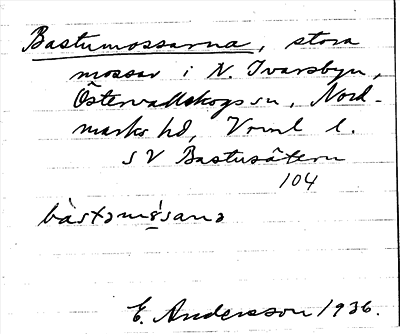 Bastumossarna, stora
mossar i N. Ivarsbyn,
Östervallskogs sn, Nord-
marks hd, Vrml l.
SV Bastusätern
104
bàstəmŏ́sanə
E. Andersson 1936.